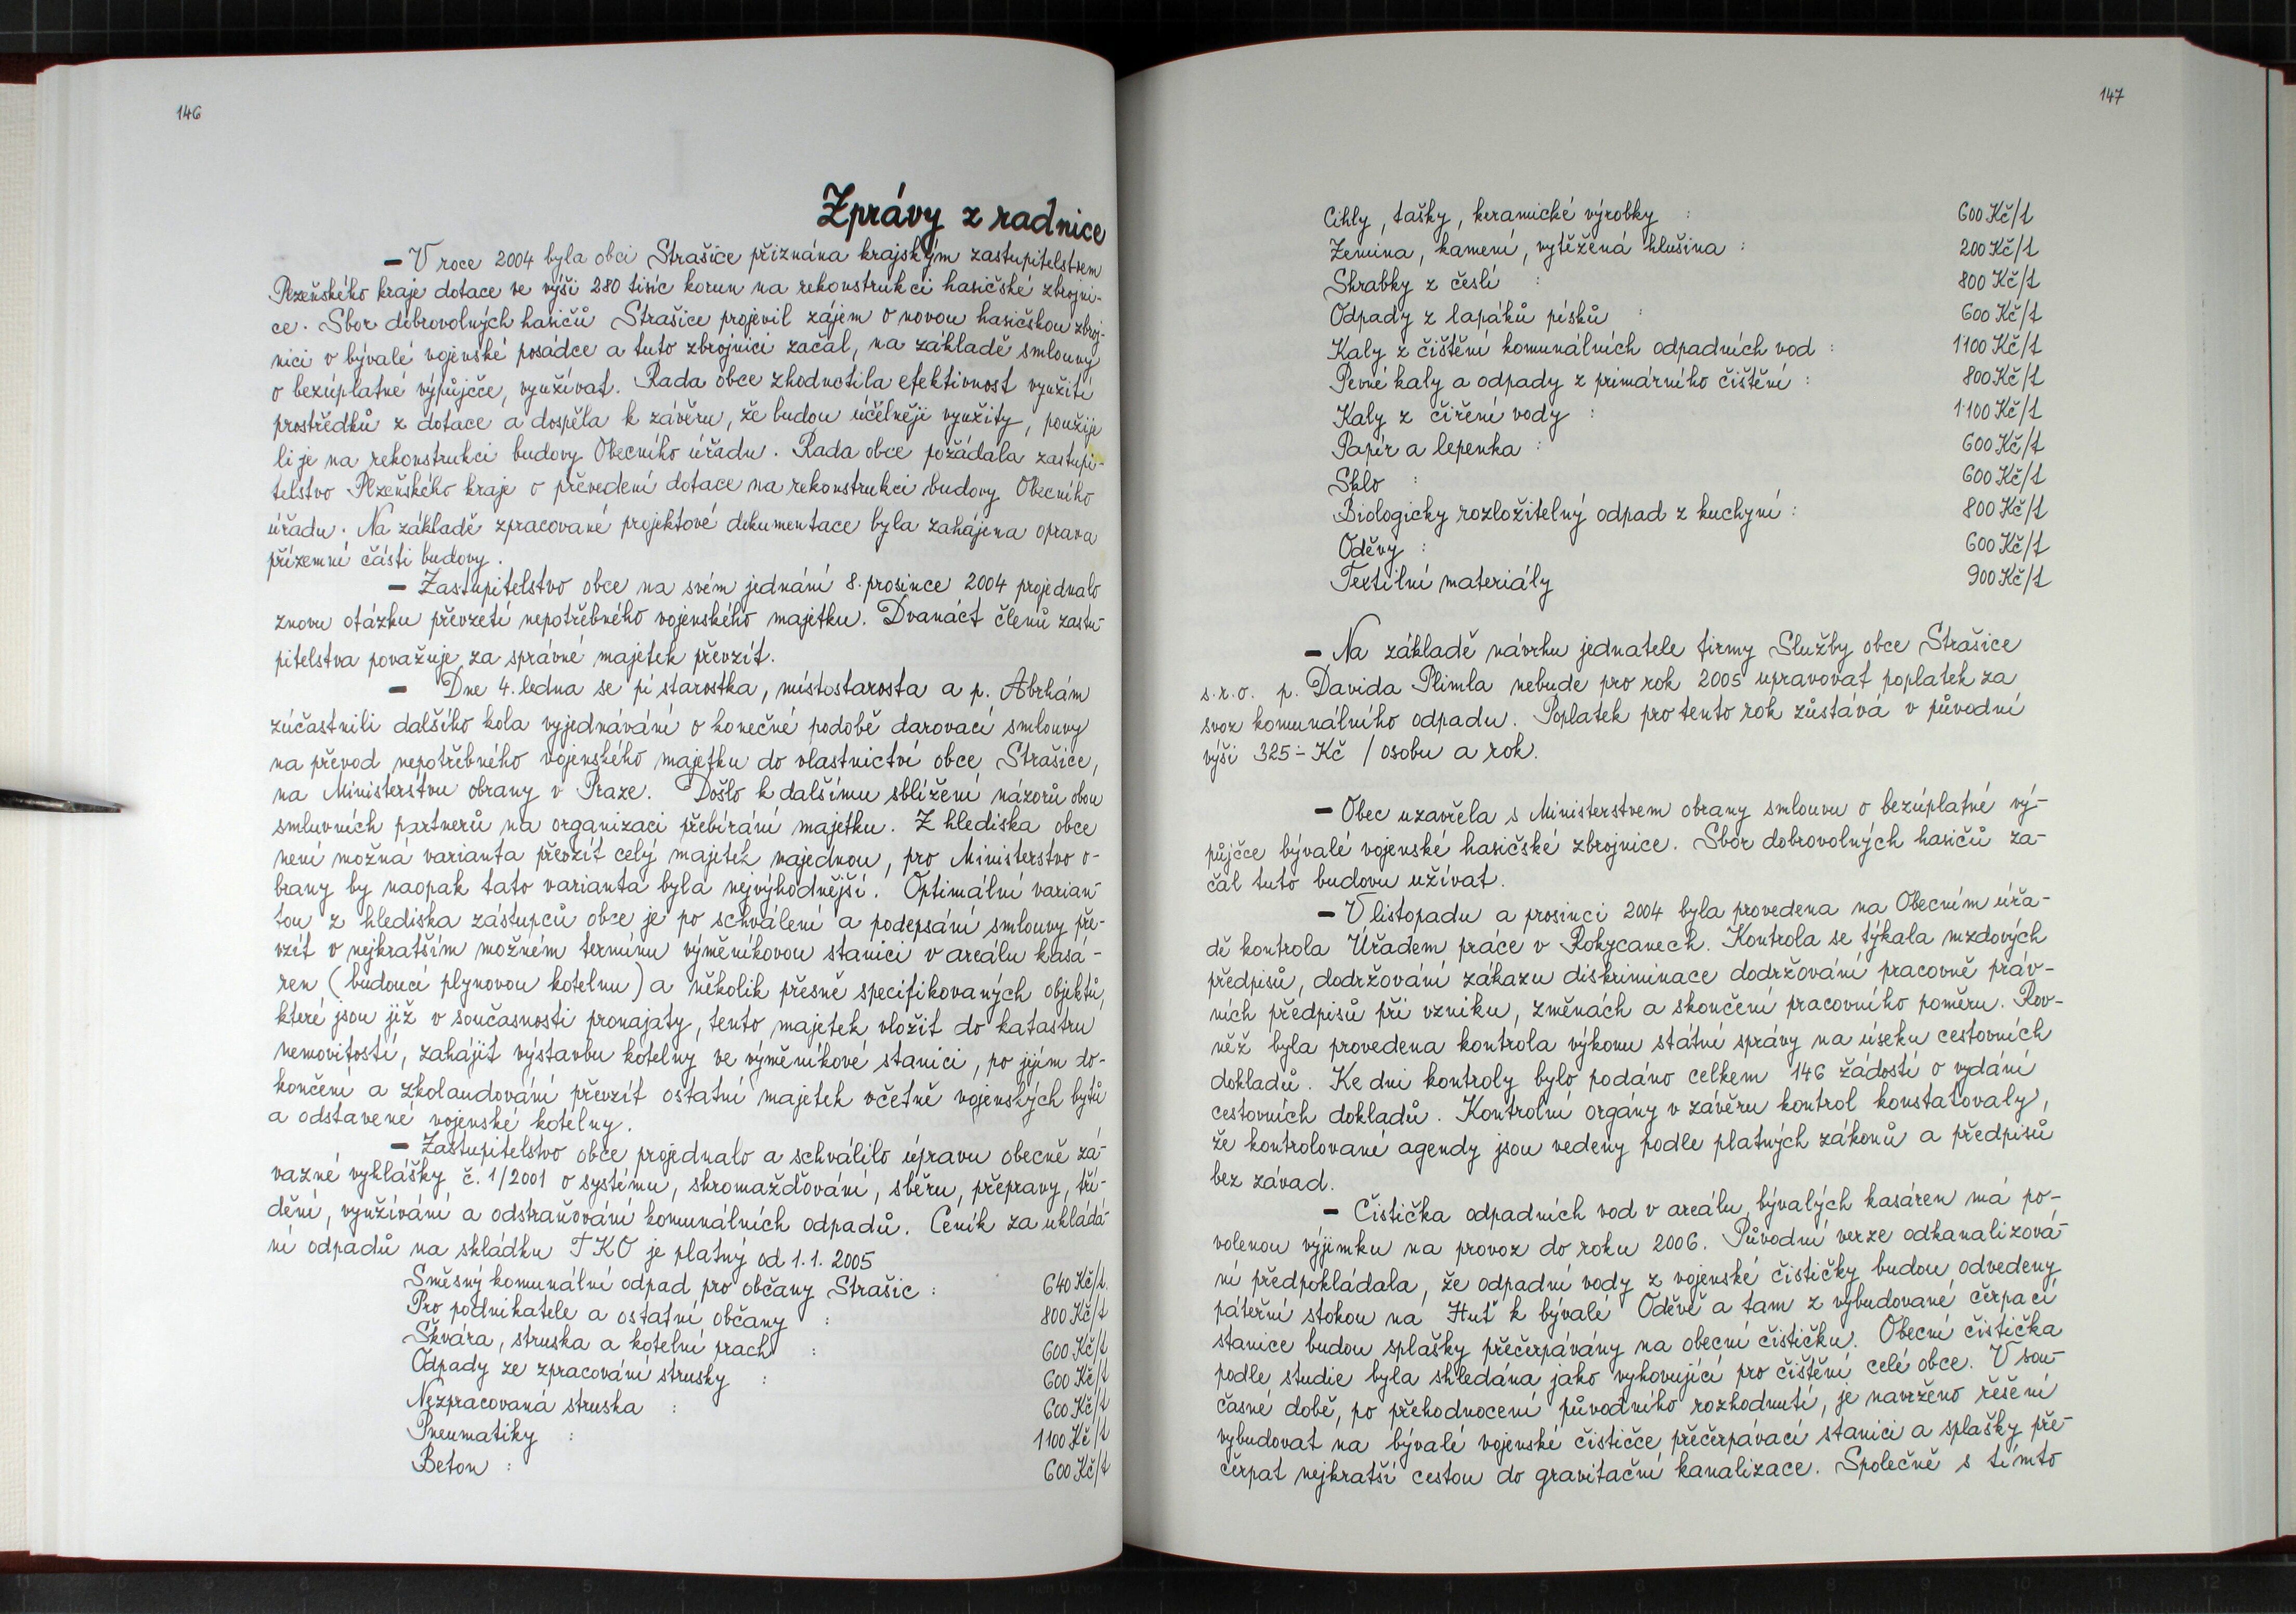 146
Zprávy z radnice
– V roce 2004 byla obci Strašice přiznána krajským zastupitelstvem
Plzeňského kraje dotace ve výši 280 tisíc korun na rekonstrukci hasičské zbrojni-
ce. Sbor dobrovolných hasičů Strašice projevil zájem o novou hasičskou zbroj-
nici v bývalé vojenské posádce a tuto zbrojnici začal, na základě smlouvy
o bezúplatné výpůjčce, využívat. Rada obce zhodnotila efektivnost využití
prostředků z dotace a dospěla k závěru, že budou účelněji využity, použije
li je na rekonstrukci budovy Obecního úřadu. Rada obce požádala zastupi-
telstvo Plzeňského kraje o převedení dotace na rekonstrukci budovy Obecního
úřadu. Na základě zpracované projektové dokumentace byla zahájena oprava
přízemní části budovy.
– Zastupitelstvo obce na svém jednání 8. prosince 2004 projednalo
znovu otázku převzetí nepotřebného vojenského majetku. Dvanáct členů zastu-
pitelstva považuje za správné majetek převzít.
– Dne 4. ledna se pí starostka, místostarosta a p. Abrhám
zúčastnili dalšího kola vyjednávání o konečné podobě darovací smlouvy
na převod nepotřebného vojenského majetku do vlastnictví obce Strašice,
na Ministerstvu obrany v Praze. Došlo k dalšímu sblížení názorů obou
smluvních partnerů na organizaci přebírání majetku. Z hlediska obce
není možná varianta převzít celý majetek najednou, pro Ministerstvo o-
brany by naopak tato varianta byla nejvýhodnější. Optimální varian-
tou z hlediska zástupců obce je po schválení a podepsání smlouvy pře-
vzít v nejkratším možném termínu výměníkovou stanici v areálu kasá-
ren (budoucí plynovou kotelnu) a několik přesně specifikovaných objektů,
které jsou již v současnosti pronajaty, tento majetek vložit do katastru
nemovitostí, zahájit výstavbu kotelny ve výměníkové stanici, po jejím do-
končení a zkolaudování převzít ostatní majetek včetně vojenských bytů
a odstavené vojenské kotelny.
– Zastupitelstvo obce projednalo a schválilo úpravu obecně zá-
vazné vyhlášky č. 1/2001 o systému, shromažďování, sběru, přepravy, tří-
dění, využívání a odstraňování komunálních odpadů. Ceník za ukládá-
ní odpadů na skládku TKO je platný od 1.1. 2005
Směsný komunální odpad pro občany Strašic : 640 Kč/t
Pro podnikatele a ostatní občany : 800 Kč/t
Škvára, struska a kotelní prach : 600 Kč/t
Odpady ze zpracování strusky : 600 Kč/t
Nezpracovaná struska : 600 Kč/t
Pneumatiky : 1100 Kč/t
Beton : 600 Kč/t
147
Cihly, tašky, keramické výrobky : 600 Kč/t
Zemina, kamení, vytěžená hlušina : 200 Kč/t
Shrabky z česlí : 800 Kč/t
Odpady z lapáků písků : 600 Kč/t
Kaly z čištění komunálních odpadních vod : 1100 Kč/t
Pevné kaly a odpady z primárního čištění : 800 Kč/t
Kaly z čiření vody : 1100 Kč/t
Papír a lepenka : 600 Kč/t
Sklo : 600 Kč/t
Biologicky rozložitelný odpad z kuchyní : 800 Kč/t
Oděvy : 600 Kč/t
Textilní materiály 900 Kč/t
– Na základě návrhu jednatele firmy Služby obce Strašice
s.r.o. p. Davida Plimla nebude pro rok 2005 upravovat poplatek za
svoz komunálního odpadu. Poplatek pro tento rok zůstává v původní
výši 325.- Kč / osobu a rok.
– Obec uzavřela s Ministerstvem obrany smlouvu o bezúplatné vý-
půjčce bývalé vojenské hasičské zbrojnice. Sbor dobrovolných hasičů za-
čal tuto budovu užívat.
– V listopadu a prosinci 2004 byla provedena na Obecním úřa-
dě kontrola Úřadem práce v Rokycanech. Kontrola se týkala mzdových
předpisů, dodržování zákazu diskriminace dodržování pracovně práv-
ních předpisů při vzniku, změnách a skončení pracovního poměru. Rov-
něž byla provedena kontrola výkonu státní správy na úseku cestovních
dokladů. Ke dni kontroly bylo podáno celkem 146 žádostí o vydání
cestovních dokladů. Kontrolní orgány v závěru kontrol konstatovaly,
že kontrolované agendy jsou vedeny podle platných zákonů a předpisů
bez závad.
– Čistička odpadních vod v areálu bývalých kasáren má po-
volenou výjimku na provoz do roku 2006. Původní verze odkanalizová-
ní předpokládala, že odpadní vody z vojenské čističky budou odvedeny
páteřní stokou na Huť k bývalé Oděvě a tam z vybudované čerpací
stanice budou splašky přečerpávány na obecní čističku. Obecní čistička
podle studie byla shledána jako vyhovující pro čištění celé obce. V sou-
časné době, po přehodnocení původního rozhodnutí, je navrženo řešení
vybudovat na bývalé vojenské čističce přečerpávací stanici a splašky pře-
čerpat nejkratší cestou do gravitační kanalizace. Společně s tímto